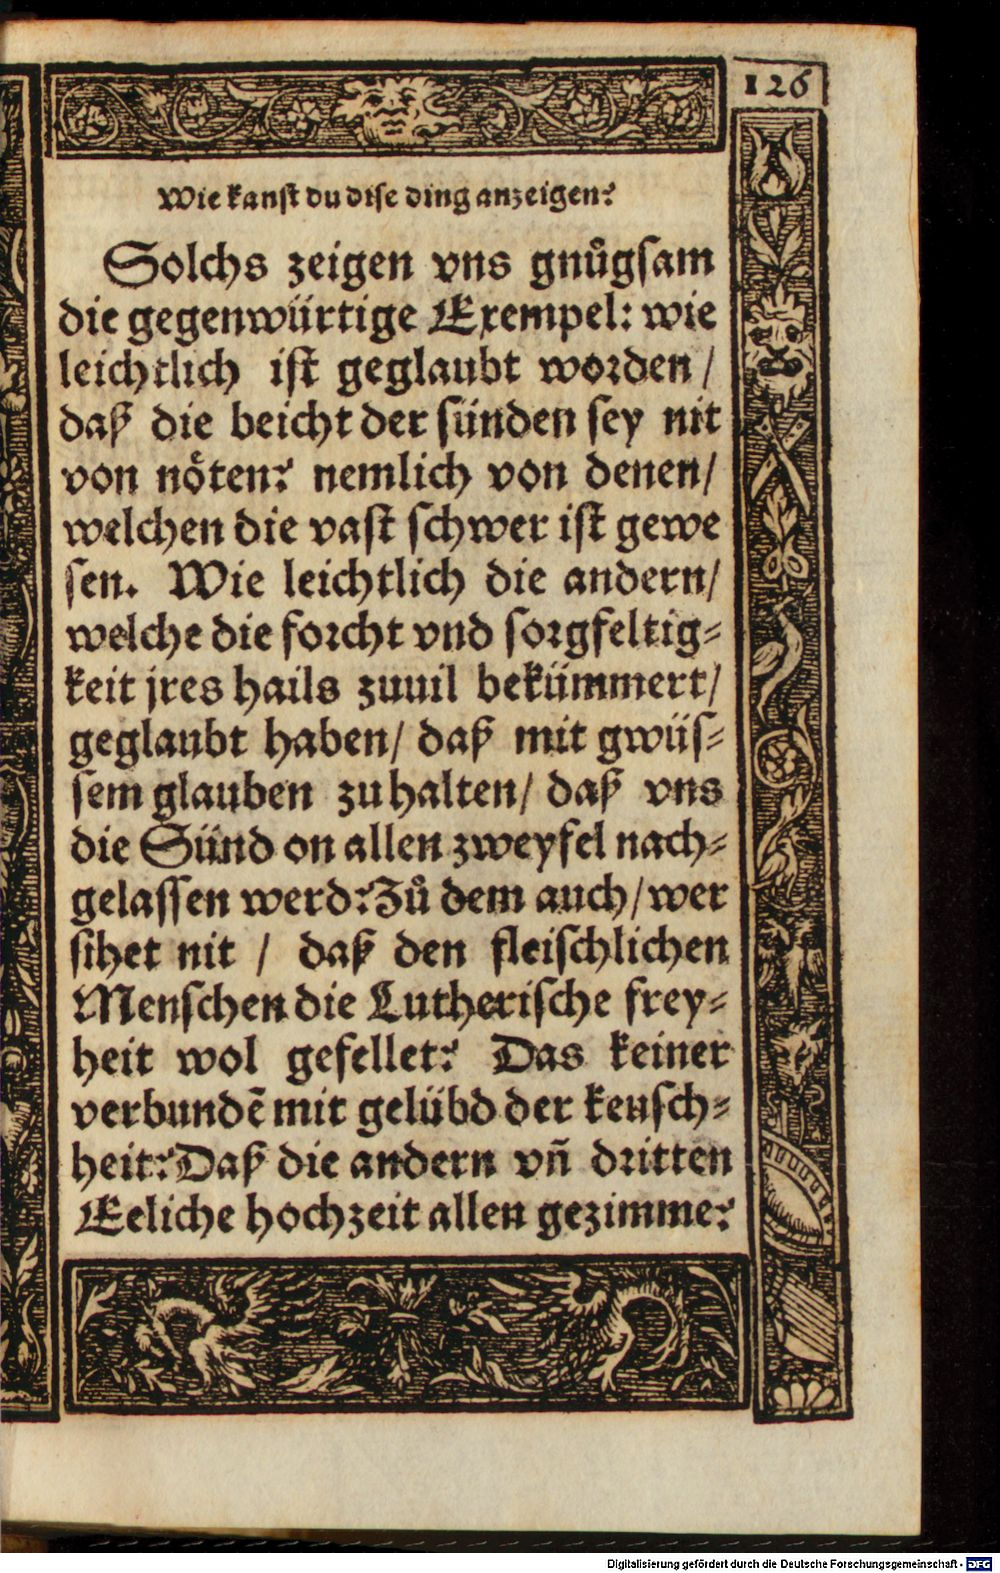 126
Wie kanst du dise ding anzeigen?
Solchs zeigen vns gnůgsam
die gegenwürtige Exempel: wie
leichtlich ist geglaubt worden/
daß die beicht der sünden sey nit
von nöten? nemlich von denen/
welchen die vast schwer ist gewe
sen. Wie leichtlich die andern/
welche die forcht vnd sorgfeltig-
keit jres hails zuuil bekümmert/
geglaubt haben/ daß mit gwüs-
sem glauben zu halten/ daß vns
die Sünd on allen zweyfel nach-
gelassen werd? Zů dem auch/ wer
sihet nit / daß den fleischlichen
Menschen die Lutherische frey-
heit wol gefellet? Das keiner
verbundē mit gelübd der keusch-
heit? Daß die andern vñ dritten
Eeliche hochzeit allen gezimme?
Digitalisierung gefördert durch die Deutsche Forschungsgemeinschaft - DFG